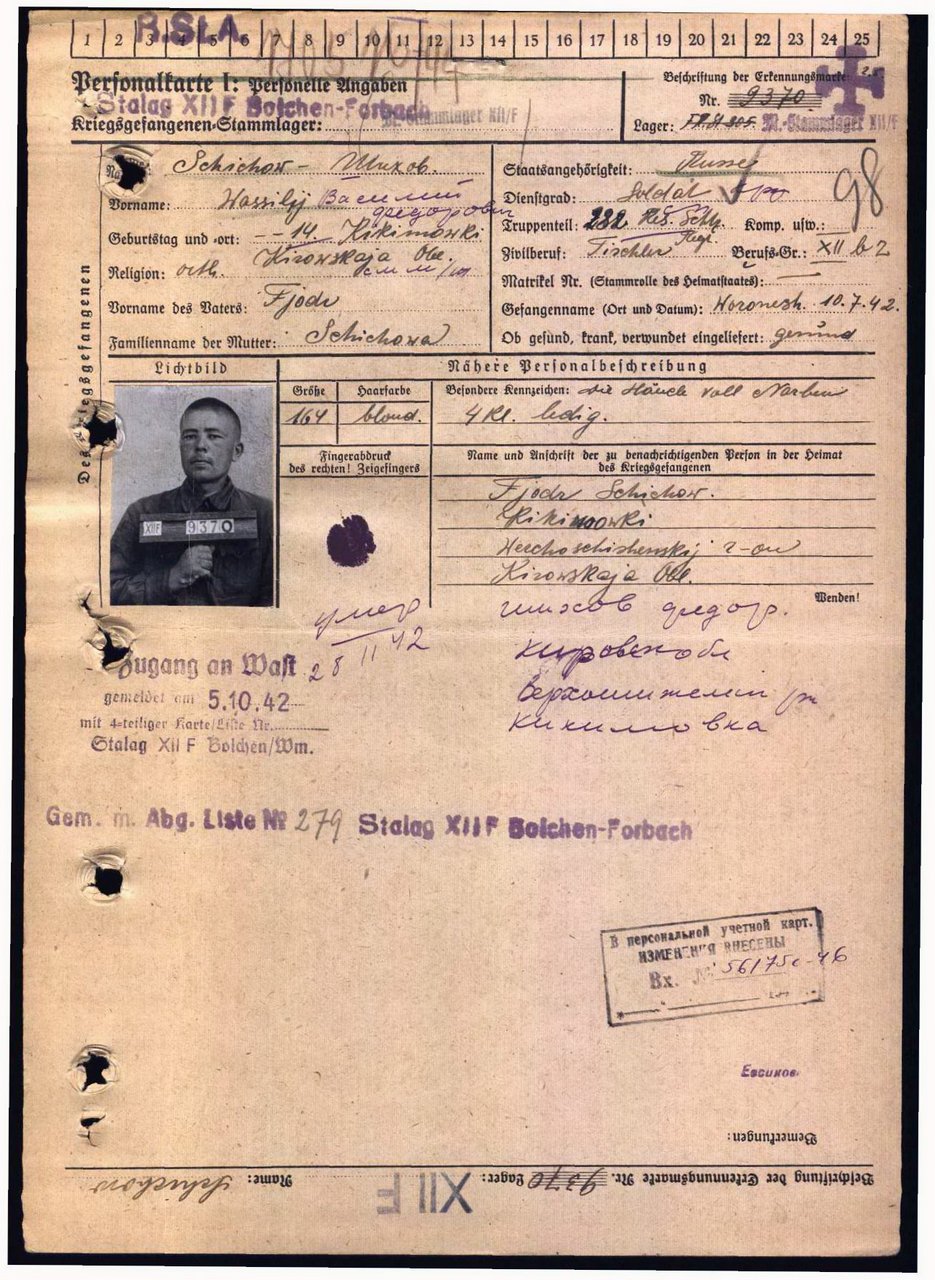 1 2 3 4 5 6 7 8 9 10 11 12 13 14 15 16 17 18 19 20 21 22 23 24 25
Personalkarte I: Personelle Angaben
Stalag XII F Bolchen-Forbach
Kriegsgefangenen-Stammlager: M.-Stammlager XII/F
Beschriftung der Erkennungsmarke
Nr. 9370
Lager: M.-Stammlager XII/F
Des Kriegsgefangenen
Schichow - Шихов.
Vorname: Wassilij Василий
Федорович
Geburtstag und -ort: - - 14. Kikimowki
Kirowskaja Obl.
Religion: orth.
Vorname des Vaters: Fjodr
Familienname der Mutter: Schichowa
Staatsangehörigkeit: Russe
Dienstgrad: Soldat
98
Truppenteil: 232 Res. Schtz. Regt. Komp. usw.: —
Zivilberuf: Tischler Berufs-Gr.: XII b 2
Matrikel Nr. (Stammrolle des Heimatstaates): —
Gefangennahme (Ort und Datum): Woronesh. 10.7.42.
Ob gesund, krank, verwundet eingeliefert: gesund
Lichtbild
Nähere Personalbeschreibung
Größe Haarfarbe
164 blond.
Besondere Kennzeichen: die voll Narben
4 Kl. ledig.
Fingerabdruck
des rechten! Zeigefingers
Name und Anschrift der zu benachrichtigenden Person in der Heimat
des Kriegsgefangenen
XII F 9370
Fjodr Schichow.
Kikimowki
Werchoschishemskij r-on
Kirowskaja Obl.
Wenden!
умер
28 11 42
шихов федор.
Кировск обл
Верхошижемский
Кикимовка
Zugang an Wast
gemeldet am 5.10.42
mit 4-teiliger Karte/Liste Nr.
Stalag XII F Bolchen/Wm.
Gem. m. Abg. Liste № 279 Stalag XII F Bolchen-Forbach
В персональной учетной карт.
ИЗМЕНЕНИЯ ВНЕСЕНЫ
Вх. № 56175с-46
Евсиков
Bemerkungen:
Beschriftung der Erkennungsmarke Nr. 9370 Lager: XII F Name: Schichow